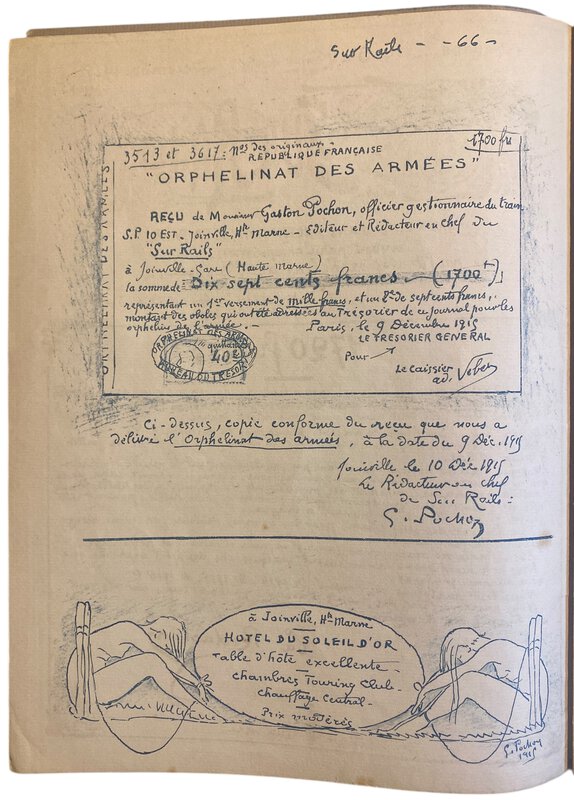 Sur Rails - -66-
3513 et 3617: Nos des originaux.
1700 frs
RÉPUBLIQUE FRANÇAISE
"ORPHELINAT DES ARMÉES"
ORPHELINAT DES ARMÉES
REÇU de Monsieur Gaston Pochon, officier gestionnaire du train
S.P. 10 EST. Joinville, Hte Marne - Editeur et Rédacteur en chef du
"Sur Rails"
à Joinville-Gare (Haute Marne)
la somme de: Dix sept cents francs - (1700 )
représentant un 1er versement de mille francs, et un 2e de sept cents francs,
montant des oboles qui ont été adressées au Trésorier de ce journal pour les
orphelins de l'armée. -
Paris, le 9 Décembre 1915
LE TRESORIER GENERAL
Pour
Le caissier
ad. Veber
ORPHELINAT DES ARMÉES
40
BUREAU DU TRESORIER
Ci-dessus, copie conforme du reçu que nous a
délivré l'Orphelinat des armées, à la date du 9 Déc. 1915
Joinville le 10 Déc. 1915
Le Rédacteur en chef
de Sur Rails:
G. Pochon
à Joinville, Hte Marne
HOTEL DU SOLEIL D'OR
Table d'hôte excellente -
chambres Touring Club -
chauffage Central -
Prix modérés
G. Pochon
1915